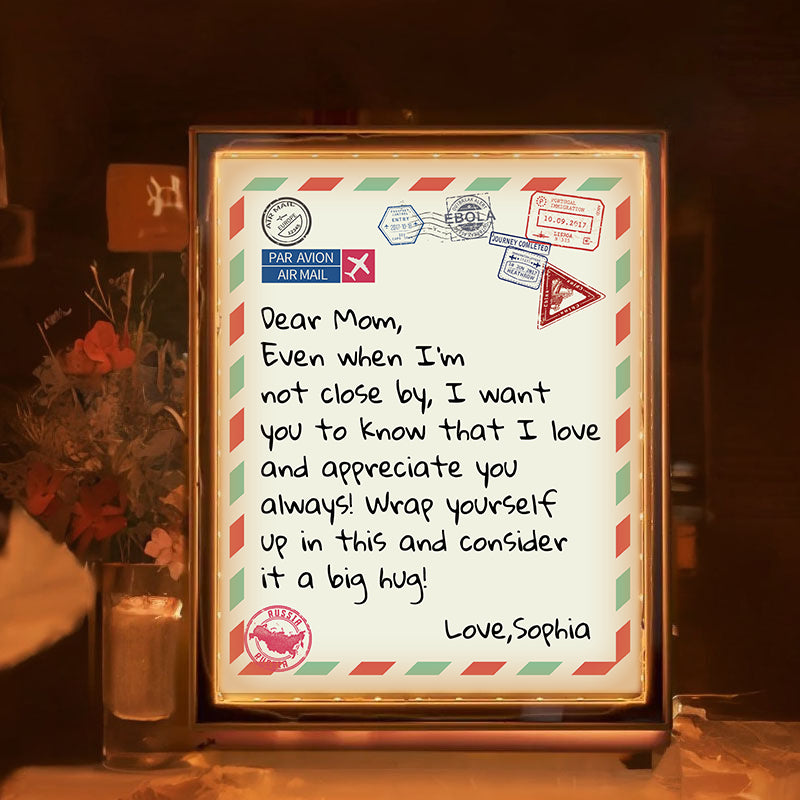 AIR MAIL
EUROPE
ENTRY
EBOLA
PORTUGAL
IMMIGRATION
10.09.2017
LISBOA
JOURNEY COMLETED
HEATHROW
PAR AVION
AIR MAIL
Dear Mom,
Even when I'm
not close by, I want
you to know that I love
and appreciate you
always! Wrap yourself
up in this and consider
it a big hug!
Love,Sophia
RUSSIA
RUSSIA